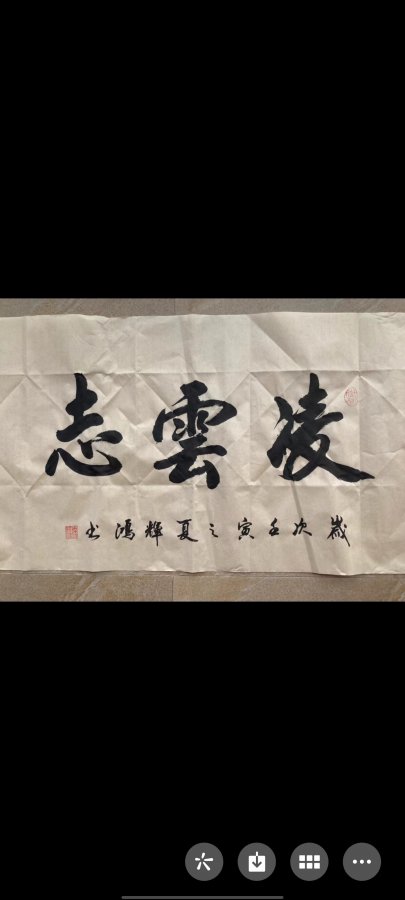 凌雲志
歲次壬寅之夏輝鴻书